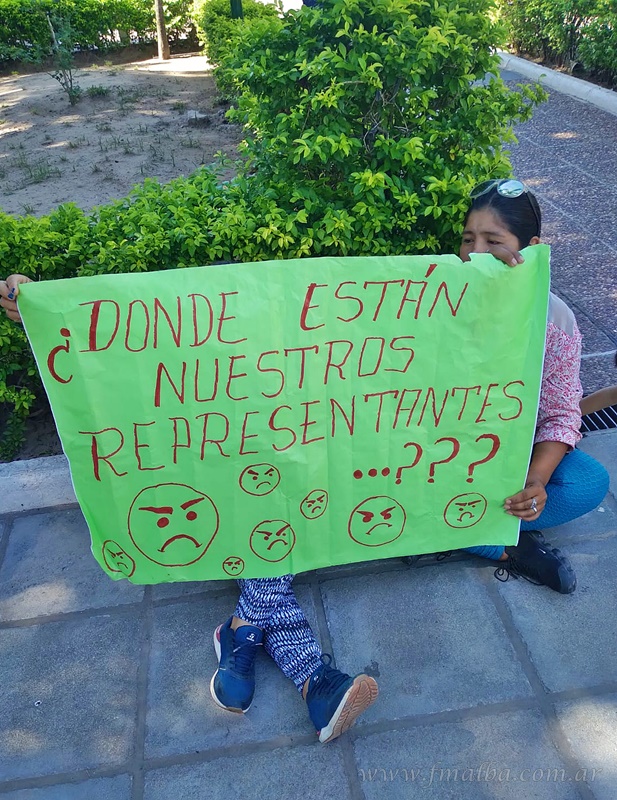 ¿DONDE ESTÁN
NUESTROS
REPRESENTANTES
...???
www.fmalba.com.ar